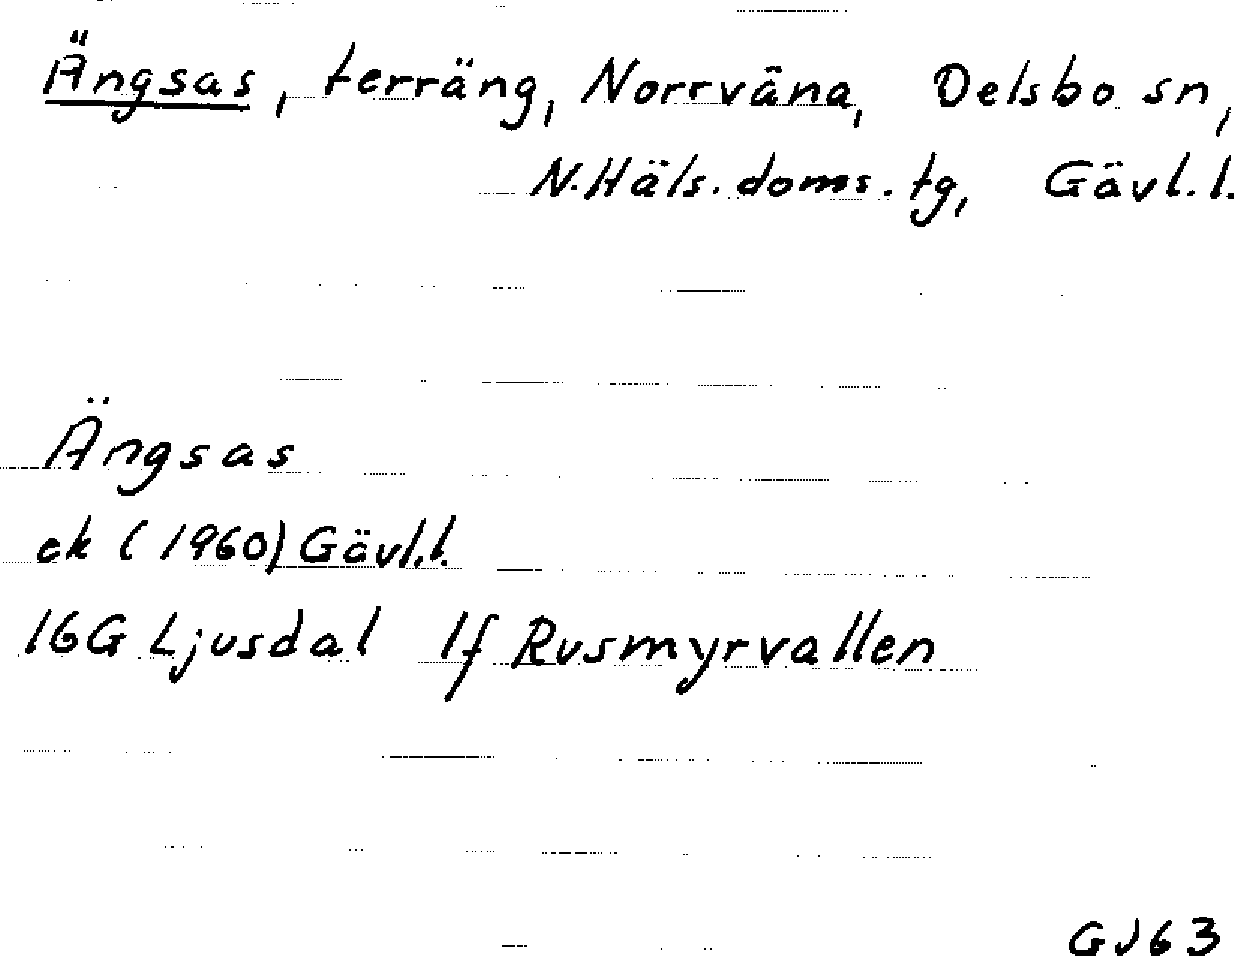 Ängsas, terräng, Norrväna, Delsbo sn,
N.Häls.doms.tg, Gävl.l.
Ängsas
ek (1960) Gävl.l.
16G Ljusdal 1f Rusmyrvallen
GJ63